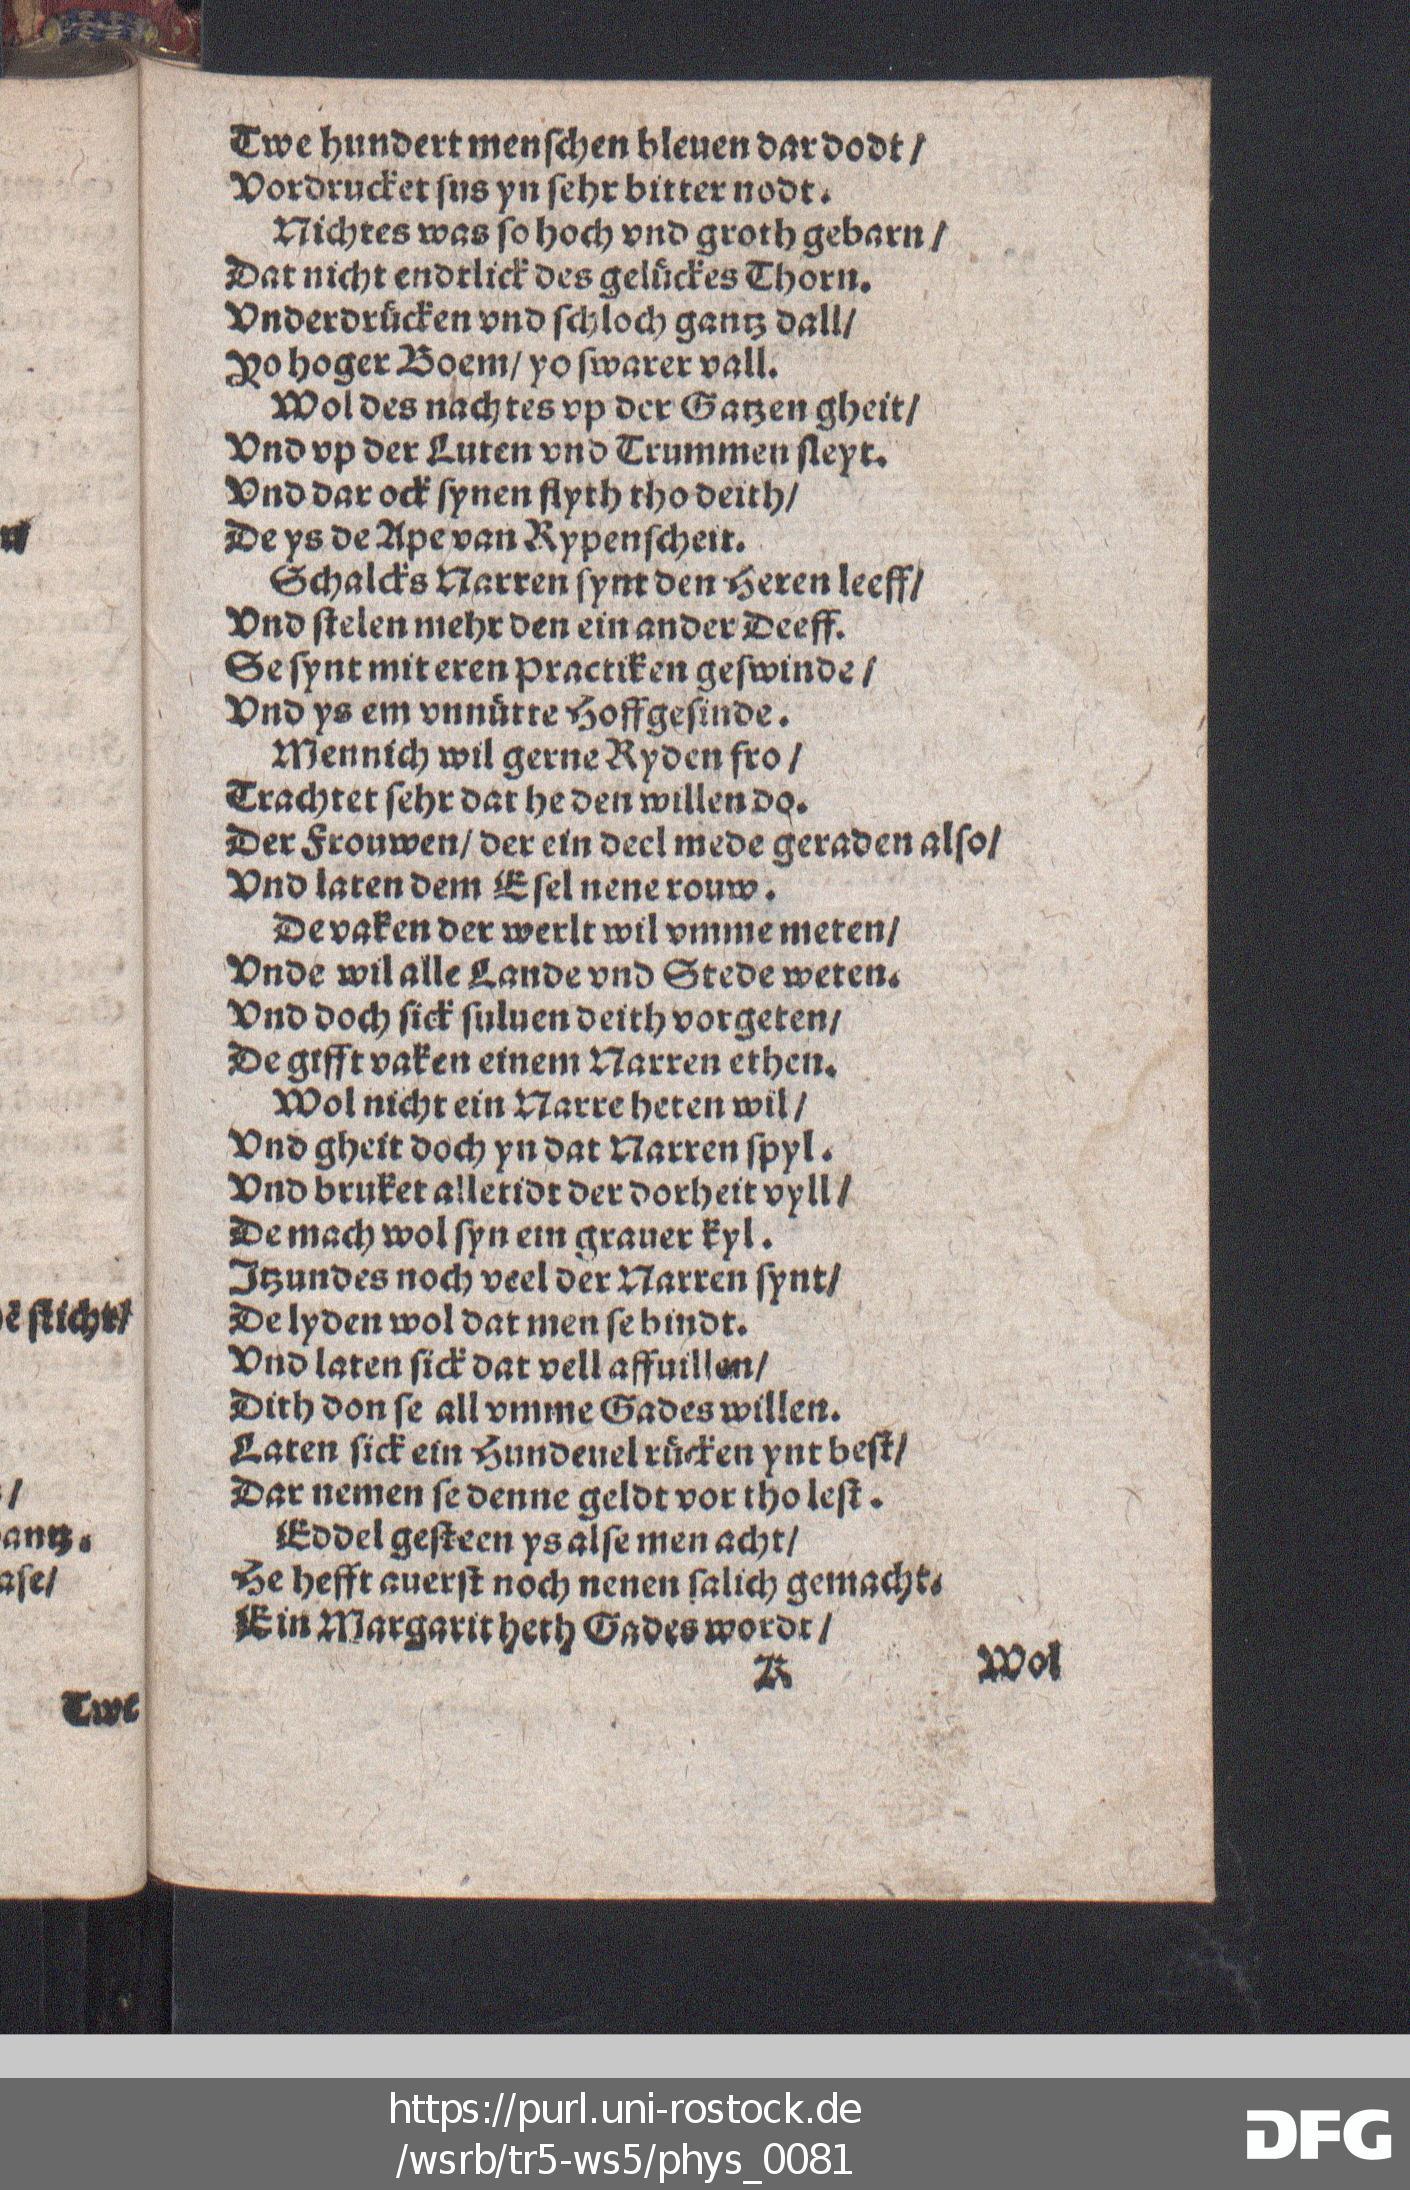 Twe hundert menſchen bleuen dar dodt /
Vordrucket ſus yn ſehr bitter nodt.
Nichtes was ſo hoch vnd groth gebarn /
Dat nicht endtlick des gelückes Thorn.
Vnderdrücken vnd ſchloch gantz dall /
Yo hoger Boem / yo ſwarer vall.
Wol des nachtes vp der Gatzen gheit /
Vnd vp der Luten vnd Trummen ſleyt.
Vnd dar ock ſynen flyth tho deith /
De ys de Ape van Rypenſcheit.
Schalcks Narren ſynt den Heren leeff /
Vnd ſtelen mehr den ein ander Deeff.
Se ſynt mit eren practiken geſwinde /
Vnd ys em vnnütte Hoffgeſinde.
Mennich wil gerne Ryden fro /
Trachtet ſehr dat he den willen do.
Der Frouwen / der ein deel mede geraden alſo /
Vnd laten dem Eſel nene rouw.
De vaken der werlt wil vmme meten /
Vnde wil alle Lande vnd Stede weten.
Vnd doch ſick ſuluen deith vorgeten /
De gifft vaken einem Narren ethen.
Wol nicht ein Narre heten wil /
Vnd gheit doch yn dat Narren ſpyl.
Vnd bruket alletidt der dorheit vyll /
De mach wol ſyn ein grauer kyl.
Itzundes noch veel der Narren ſynt /
De lyden wol dat men ſe bindt.
Vnd laten ſick dat vell affuillen /
Dith don ſe all vmme Gades willen.
Laten ſick ein Hundeuel rücken ynt beſt /
Dar nemen ſe denne geldt vor tho leſt.
Eddel geſteen ys alſe men acht /
He hefft auerſt noch nenen ſalich gemacht.
Ein Margarit heth Gades wordt /
K Wol
ſticht /
/
antz.
aſe /
Twe
https://purl.uni-rostock.de
/wsrb/tr5-ws5/phys_0081
DFG